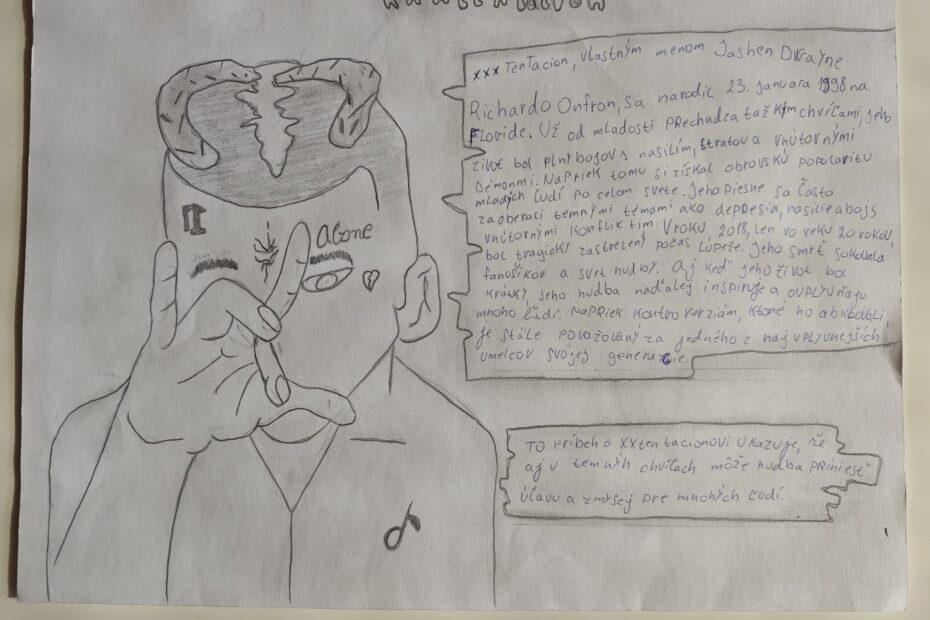 xxxTenTacion
xxxTenTacion, vlastným menom Jashen Dwayne
Richardo Onfron, sa narodil 23. januara 1998 na
Floride. Už od mladosti prechadza ťažkým chvíľami, jeho
život bol plný bojov s nasilím, stratou a vnútornými
démonmi. Napriek tomu si získal obrovskú popularitu
mladých ľudí po celom svete. Jeho piesne sa často
zaoberali temnými témami ako depresia, nasilie a bojs
vnútornými konfliktim. V roku 2018, len vo veku 20 rokov,
bol tragický zastrelený počas lúpeže. Jeho smrť šokovala
fanúšikov a svet hudby. Aj keď jeho život bol
krátky, jeho hudba naďalej inspiruje a ovplyvňaju
mnoho ľudí. Napriek kontroverziám, ktoré ho
je stále považovaný za jedného z najvplyvnejších
umelcov svojej generacie.
Alone
To príbeh o XXtentacionovi ukazuje, že
aj v temných chvíľach môže hudba priniesť
úľavu a zmysej pre mnohých ľudí.